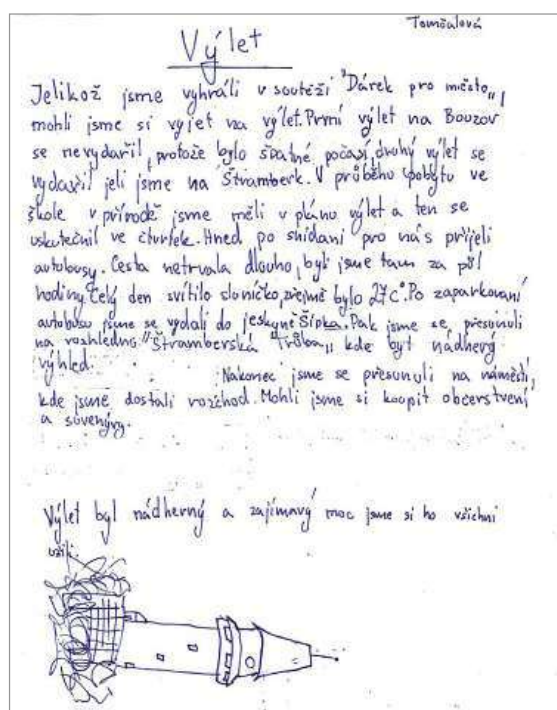 Tomčalová
Výlet
Jelikož jsme vyhráli v soutěži "Dárek pro město„,
mohli jsme si vyjet na výlet. První výlet na Bouzov
se nevydařil, protože bylo špatné počasí, druhý výlet se
vydařil jeli jsme na Štramberk. V průběhu pobytu ve
škole v přírodě jsme měli v plánu výlet a ten se
uskutečnil ve čtvrtek. Hned po snídani pro nás přijeli
autobusy. Cesta netrvala dlouho, byli jsme tam za půl
hodiny. Celý den svítilo sluníčko, zřejmě bylo 27c°. Po zaparkovaní
autobusu jsme se vydali do jeskyně Šipka. Pak jsme se přesunuli
na rozhlednu "Štramberská Trůba„ kde byl nádherý
výhled.
Nakonec jsme se přesunuli na náměstí,
kde jsme dostali rozchod. Mohli jsme si koupit občerstvení
a suvenýry.
Výlet byl nádherný a zajímavý moc jsme si ho všichni
užili.